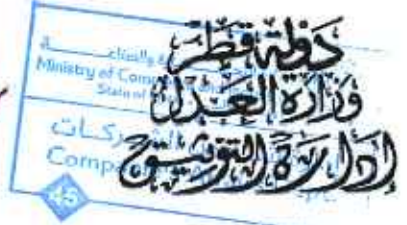 دولة قطر
وزارة العدل
إدارة التوثيق
Ministry of Com
State of
الشركات
Comp
45